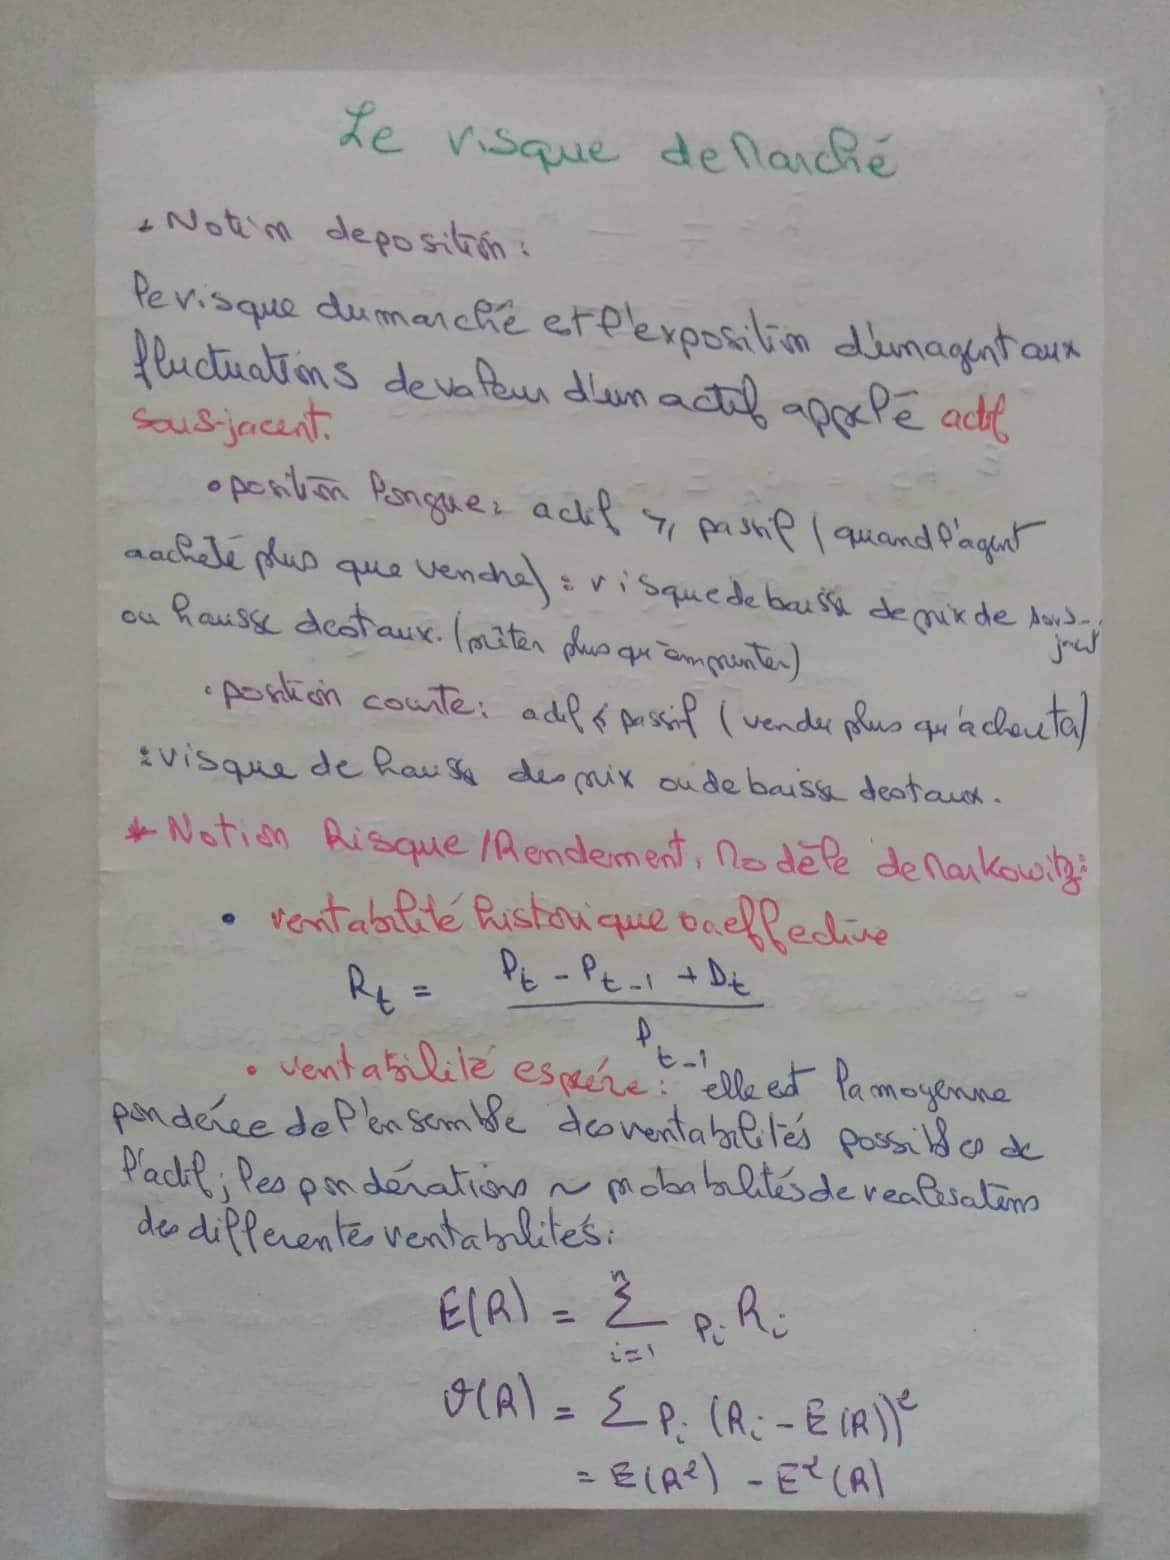 Le risque de Marché
* Notion de position :
le risque du marché et l'exposition d'un agent aux
fluctuations de valeur d'un actif appelé actif
sous-jacent.
• position longue : actif ⩾ passif (quand l'agent
a acheté plus que vendre) : risque de baisse de prix de sous-
jacent
ou hausse des taux. (prêter plus qu'emprunter)
• position courte : actif ⩽ passif (vendu plus qu'acheuta)
: risque de hausse des prix ou de baisse des taux.
* Notion Risque /Rendement, Modèle de Markowitz :
• rentabilité historique ou effective
R_t = (P_t - P_{t-1} + D_t) / P_{t-1}
• rentabilité espérée : elle est la moyenne
pondérée de l'ensemble des rentabilités possibles de
l'actif ; les pondérations ~ probabilités de realisations
des differentes rentabilités :
E(R) = Σ_{i=1}^{n} P_i R_i
V(R) = Σ P_i (R_i - E(R))²
= E(R²) - E²(R)